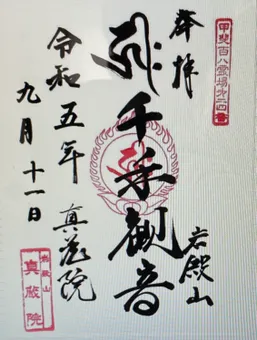 甲斐百八霊場第二四番
奉拝
千手観音
岩殿山
真蔵院
令和五年
九月十一日
岩殿山
真蔵院